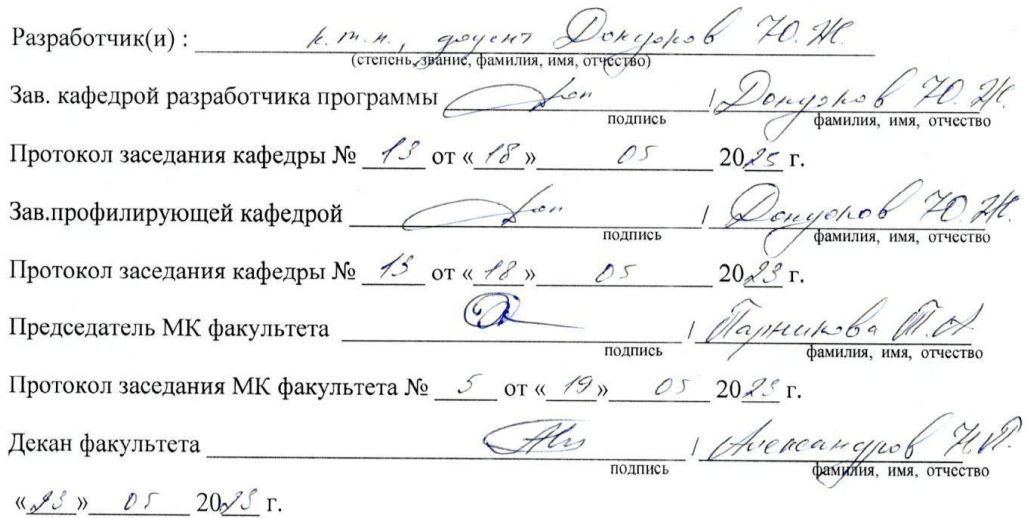 Разработчик(и) : к.т.н., доцент Докторов Ю.Ж.
(степень, звание, фамилия, имя, отчество)
Зав. кафедрой разработчика программы / Ю.Ж.
подпись фамилия, имя, отчество
Протокол заседания кафедры № 13 от « 18 » 05 20 г.
Зав.профилирующей кафедрой / Ю.Ж.
подпись фамилия, имя, отчество
Протокол заседания кафедры № 13 от « 18 » 05 2023 г.
Председатель МК факультета / Парникова Т.А.
подпись фамилия, имя, отчество
Протокол заседания МК факультета № 5 от « 19 » 05 2023 г.
Декан факультета / Александров Н.П.
подпись фамилия, имя, отчество
«23» 05 2023 г.